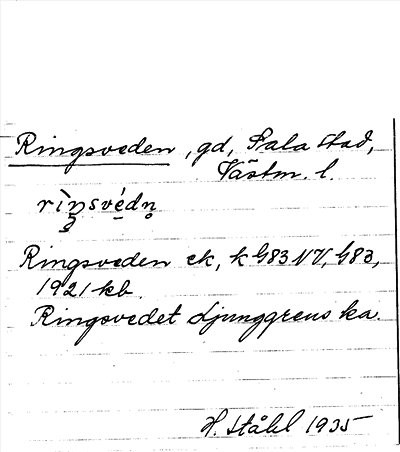 Ringsveden, gd, Sala stad,
Västm. l.
rìŋsvédn̥
Ringsveden ek, k G83 NV, G83,
1921 kb.
Ringsvedet Ljunggrens ka.
H. Ståhl 1935